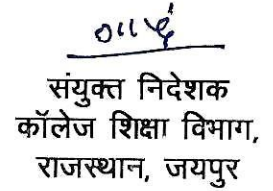 संयुक्त निदेशक
कॉलेज शिक्षा विभाग,
राजस्थान, जयपुर